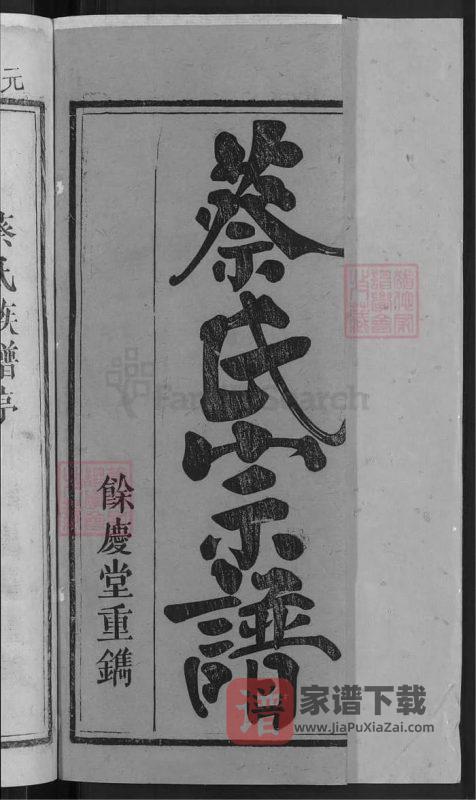 蔡氏宗譜
餘慶堂重鐫
元
蔡氏族譜序
FamilySearch
谱
家谱下载
www.JiaPuXiaZai.com